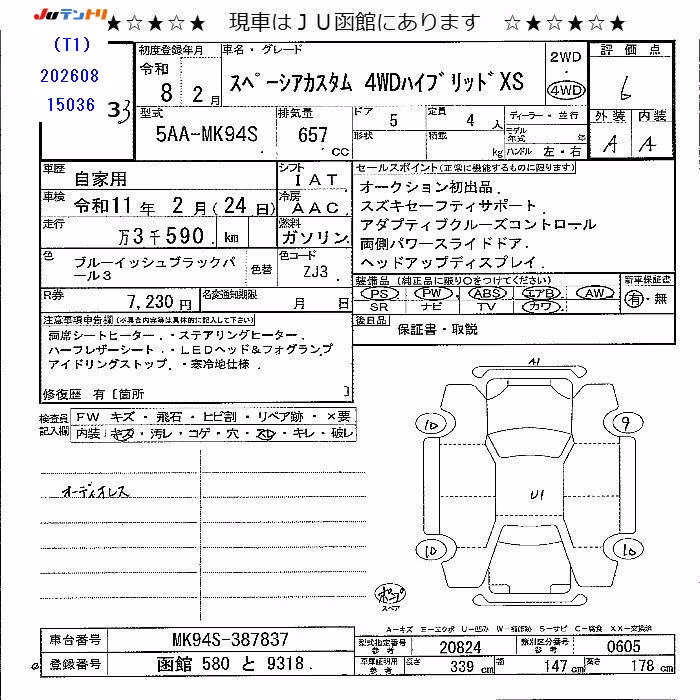 JUテントリ ★☆★☆★ 現車はＪＵ函館にあります ☆★☆★☆★
(T1)
202608
15036
33
初度登録年月
令和
8 2月
車名・グレード
スペーシアカスタム 4WDハイブリッドXS
2WD
・
4WD
評価点
6
外装 内装
A A
型式
5AA-MK94S
排気量
657
cc
ドア
5
形状
定員
4 人
積載
kg
ディーラー・並行
モデル年式 年
ハンドル 左・右
車歴
自家用
シフト
IAT
車検
令和11年 2月(24日)
冷房
AAC
走行
万3千590. km
燃料
ガソリン
色
ブルーイッシュブラックパール3
色替
色コード
ZJ3
R券
7,230円
名変通知期限
月 日
セールスポイント(正常に機能するものに限ります)
オークション初出品.
スズキセーフティサポート.
アダプティブクルーズコントロール
両側パワースライドドア.
ヘッドアップディスプレイ.
装備品(純正品に限り○をつけてください)
PS PW ABS エアB AW
SR ナビ TV カワ
新車保証書
有・無
後日品
保証書・取説
注意事項申告欄(※異音内容等は具体的に記入して下さい)
両席シートヒーター.・ステアリングヒーター.
ハーフレザーシート.・LEDヘッド&フォグランプ
アイドリングストップ.・寒冷地仕様.
修復歴 有[箇所 ]
検査員記入欄
FW キズ・飛石・ヒビ割・リペア跡・×要
内装 キズ・汚レ・コゲ・穴・スレ・キレ・破レ
オーディオレス
A1
10
9
U1
10
10
スペア
A－キズ E－エクボ U－凹み W－補修跡 S－サビ C－腐食 XX－交換済
車台番号
MK94S-387837
登録番号
函館 580 と 9318.
型式指定番号
参考
20824
類別区分番号
参考
0605
車庫証明用
参考
長さ
339 cm
幅
147 cm
高さ
178 cm